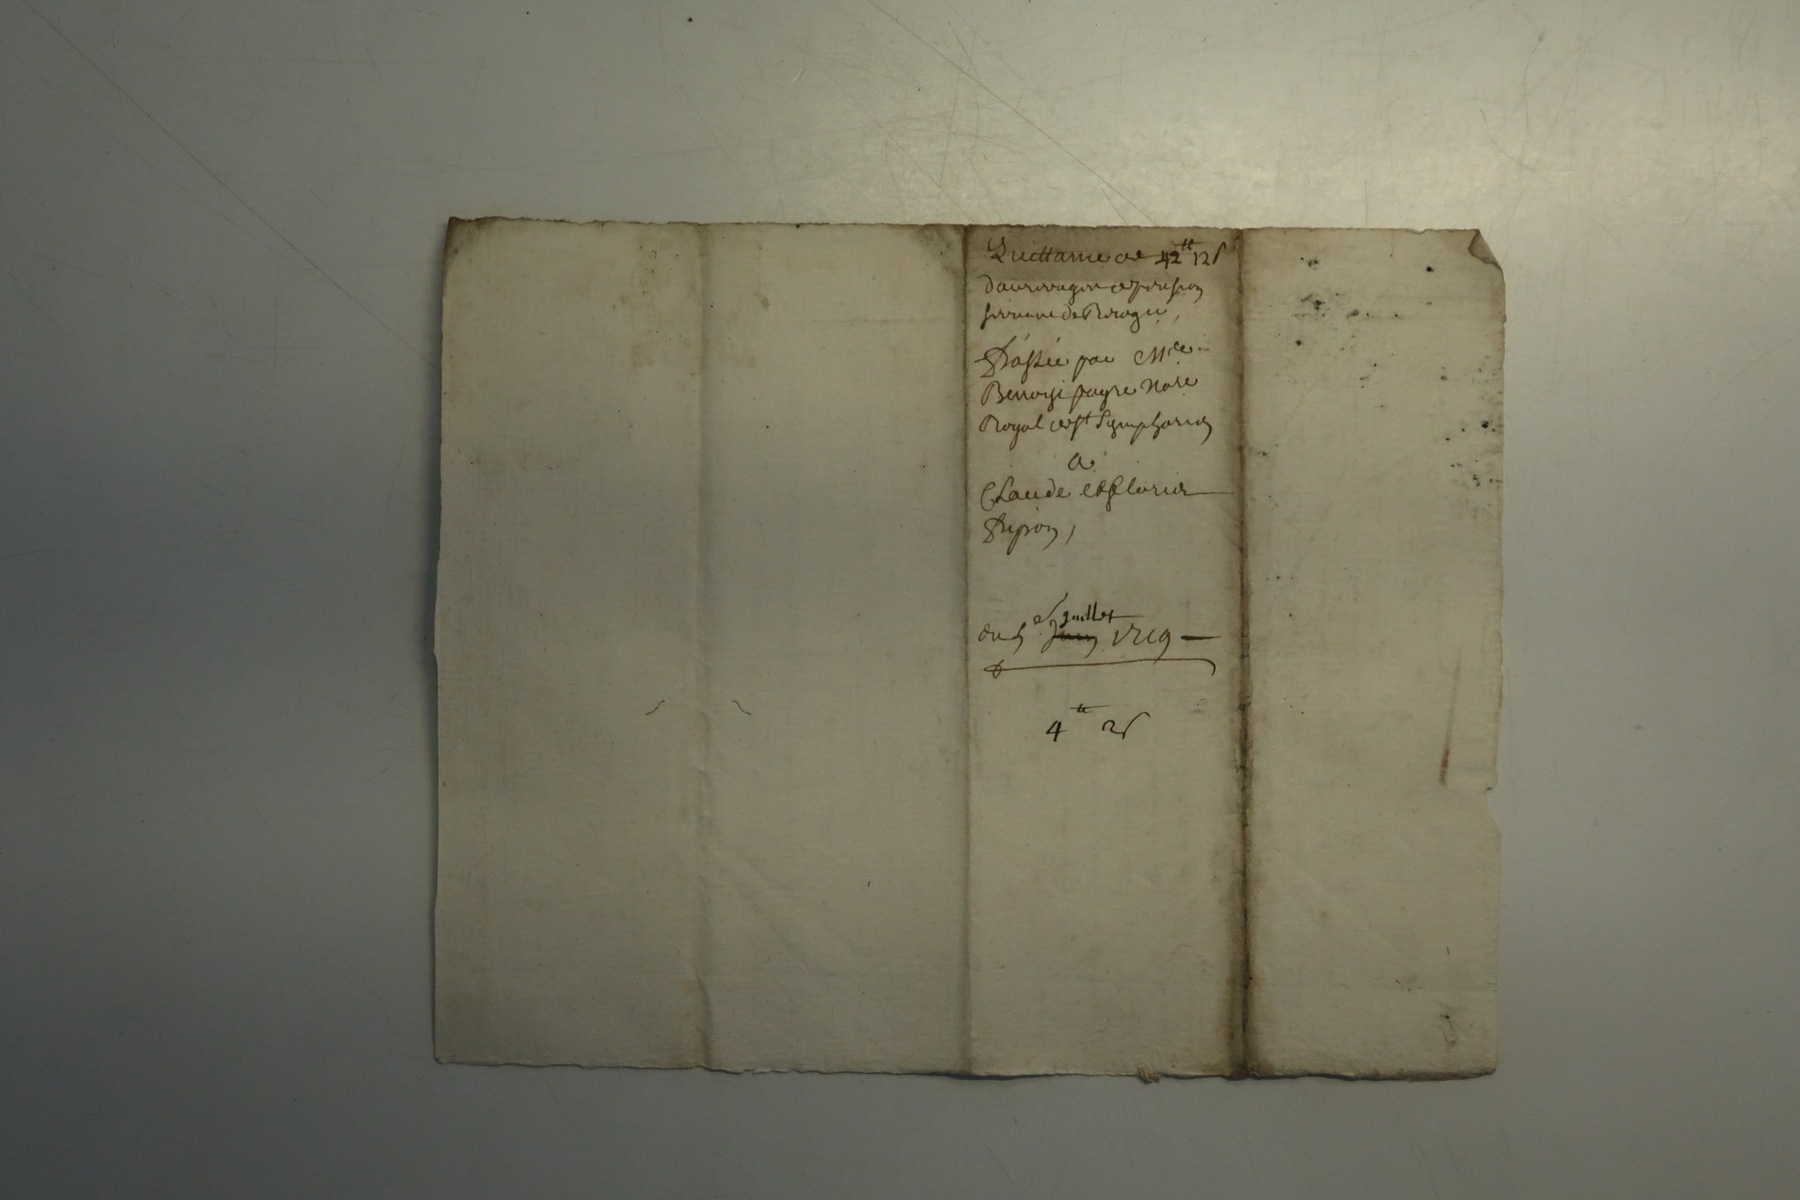 Quittance de 42tt 12s
d'arrerages de pension
fonciere de
Passée par Mre
Benoist payre Nore
Royal de St Symphorien
a
Claude et Florie
Pipon,
du 5e Juin juillet 1719
4tt 2s